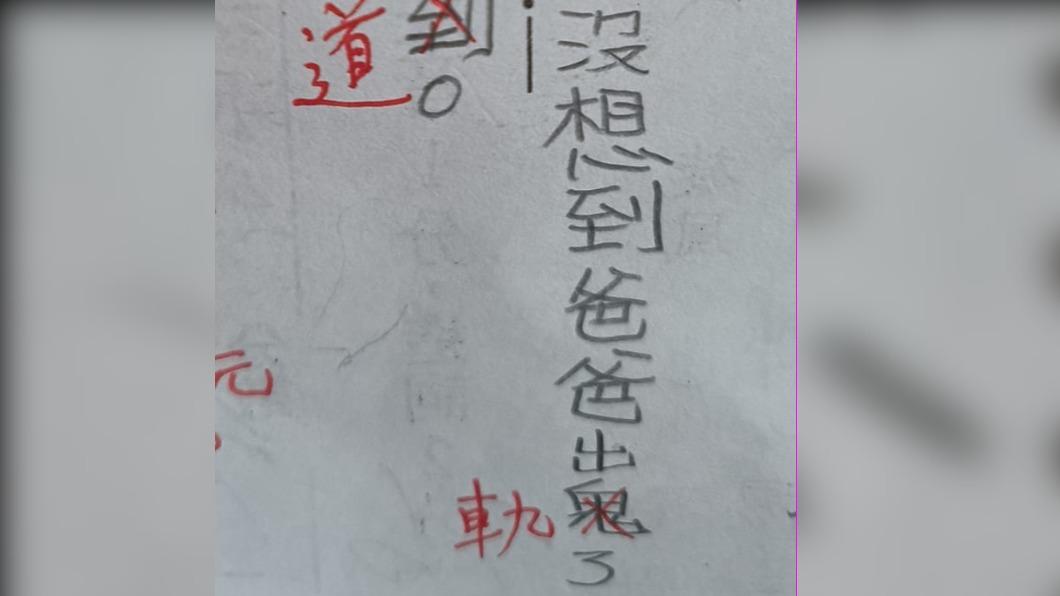 沒想到爸爸出鬼了
軌
到。
道
元